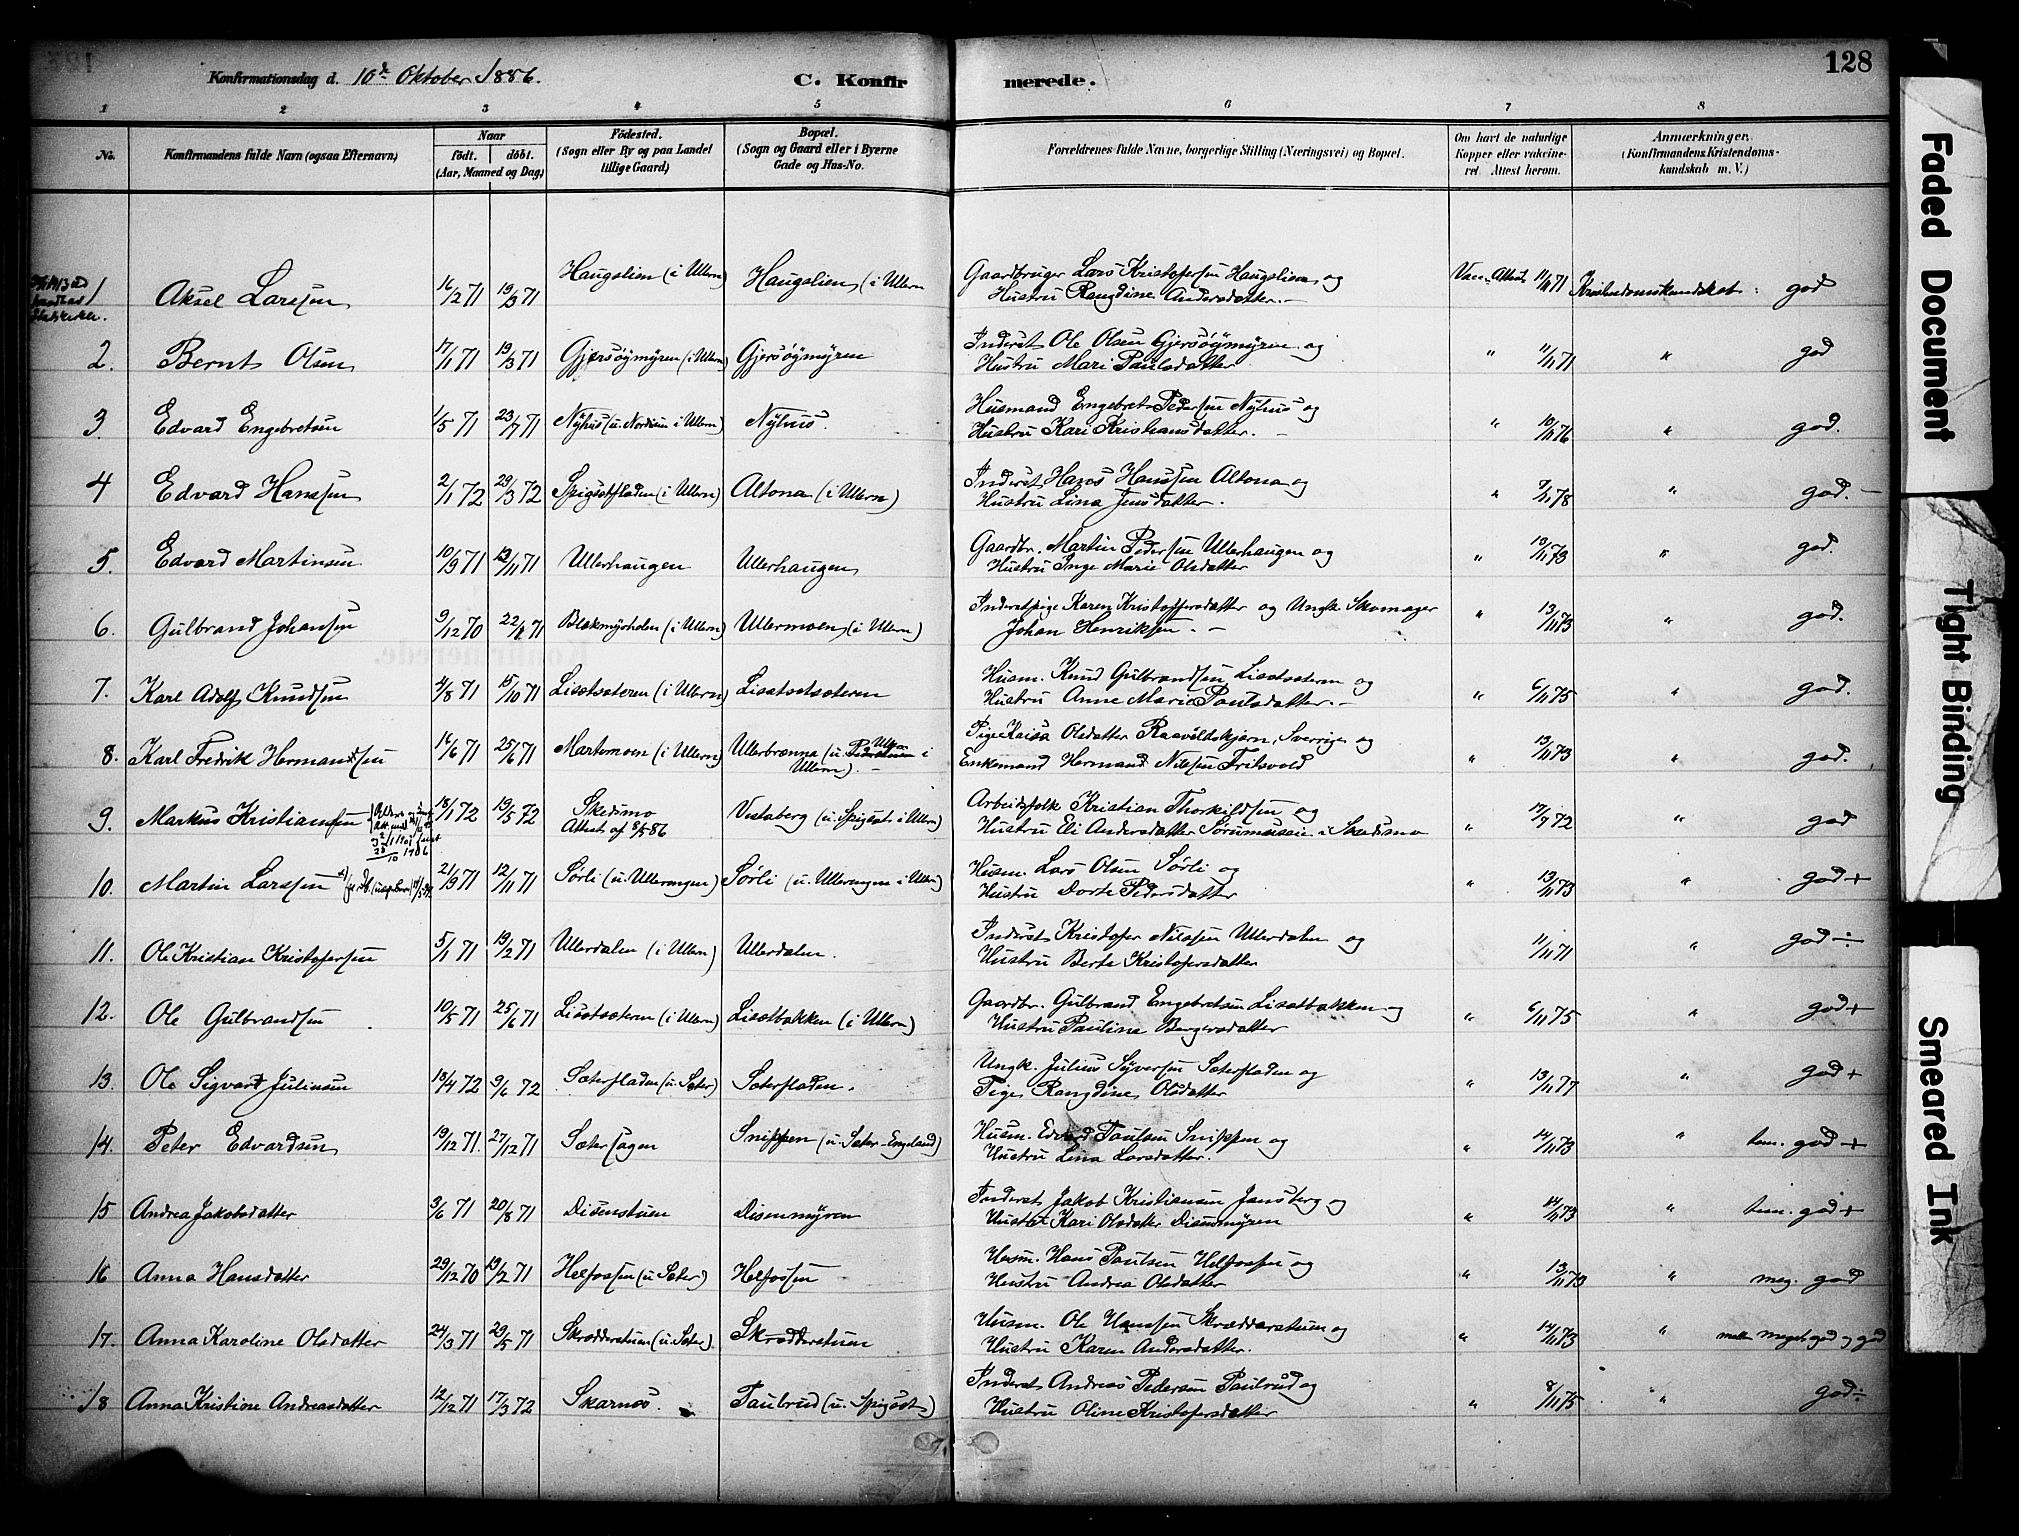 128
Konfirmationsdag d. 10de Oktober 1886.
C. Konfirmerede.
1 2 3 4 5 6 7 8
No.
Konfirmandens fulde Navn (ogsaa Efternavn)
Naar
født. døbt.
(Aar, Maaned og Dag)
Fødested.
(Sogn eller By og paa Landet
tillige Gaard)
Bopæl.
(Sogn og Gaard eller i Byerne
Gade og Hus-No.
Forældrenes fulde Navne, borgerlige Stilling (Næringsvei) og Bopæl.
Om havt de naturlige
Kopper eller vakcineret. Attest herom.
Anmærkninger.
(Konfirmandens Kristendomskundskab m. V.)
1 Aksel Larssen 16/2 71 19/3 71 Haugslien (i Ullern) Haugslien (i Ullern
Gaardbruger Lars Kristofersen Haugslien og
Hustru Rangdine Andersdatter.
Vacc. Attest 11/11 71 Kristendomskundskab: god
2. Bernt Olsen 17/1 71 19/3 71 Gjersøymyren (i Ullern) Gjersøymyren
Inderst Ole Olsen Gjersøymyren og
Hustru Mari Paulsdatter
" 11/11 71 " god
3. Edvard Engebretsen 1/5 71 23/7 71 Nyhus (u. Nordien i Ullern) Nyhus.
Husmand Engebret Pedersen Nyhus og
Hustru Kari Kristiansdatter.
" 10/11 76 " god.
4 Edvard Hanssen 2/1 72 29/3 72 Spigsetfladen (i Ullern) Altona (i Ullern)
Inderst Hans Hanssen Altona og
Hustru Lina Jensdatter.
" 7/11 78 " god.
5. Edvard Martinsen 10/9 71 12/11 71 Ullerhaugen Ullerhaugen
Gaardbr. Martin Pedersen Ullerhaugen og
Hustru Inge Marie Olsdatter
" 13/11 73 " god.
6. Gulbrand Johansen 9/12 70 22/1 71 Blekmyrholen (i Ullern) Ullermoen (i Ullern)
Inderstpige Karen Kristoffersdatter og Ungk. Skomager
Johan Henriksen.
" 13/11 73 " god.
7. Karl Adolf Knudsen 4/8 71 15/10 71 Lisetsæteren (i Ullern) Lisætsætsæteren
Husm. Knud Gulbrandsen Lisetsæteren og
Hustru Anne Marie Paulsdatter.
" 6/11 75 " god.
8. Karl Fredrik Hermandsen 14/6 71 25/6 71 Martomoen (i Ullern) Ullerbrænna (u. Uller i
Ullern).
Pige Kaisa Olsdatter Raavoldskjern, Sverrige og
Enkemand Hermand Nilssen Fritsvold
" 13/11 73 " god.
9. Markus Kristiansen 18/1 72 19/5 72 Skedsmo
Attest af 9/5 86
Vestaberg (u. Spigset i Ullern)
Arbeidsfolk Kristian Thorkildsen og
Hustru Eli Andersdatter Sørumseie i Skedsmo
" 17/9 72 " god
10. Martin Larssen 21/9 71 12/11 71 Sørli (u. Ullerengen) Sørli (u. Ullerengen i Ullern)
Husm. Lars Olsen Sørli og
Hustru Dorte Pedersdatter
" 13/11 73 " god +
11. Ole Kristian Kristofersen 5/1 71 19/2 71 Ullerdalen (i Ullern) Ullerdalen.
Inderst Kristofer Nilssen Ullerdalen og
Hustru Berte Kristofersdatter
11/11 71 " god ÷
12. Ole Gulbrandsen 10/5 71 25/6 71 Lisetsæteren (i Ullern) Lisætbakken (i Ullern)
Gaardbr. Gulbrand Engebretsen Lisætbakken og
Hustru Pauline Bergersdatter
" 6/11 75 " god +
13. Ole Sigvart Juliussen 13/4 72 9/6 72 Sæterfladen (u. Sæter) Sæterfladen.
Ungk. Julius Syversen Sæterfladen og
Pige Rangdine Olsdatter
" 13/11 77 " god +
14. Peter Edvardsen 19/12 71. 27/12 71 Sætersagen Snippen (u. Sæter-Engeland)
Husm. Edvard Paulsen Snippen og
Hustru Lina Larsdatter.
" 14/11 73 " tem. god +
15 Andrea Jakobsdatter 3/6 71 20/8 71 Disenstuen Disenmyren
Inderst Jakob Kristiansen Jansberg og
Hustru Kari Olsdatter Disenmyren
" 14/11 73 " tem. god +
16 Anna Hansdatter 29/12 70 19/2 71 Helfossen (u. Sæter) Helfossen
Husm. Hans Paulsen Helfossen og
Hustru Andrea Olsdatter
" 13/11 73 " meg. god
17. Anna Karoline Olsdatter 24/3 71 29/5 71 Skrædderstuen (u. Sæter). Skrædderstuen
Husm. Ole Hanssen Skrædderstuen og
Hustru Karen Andersdatter.
" 14/11 73 " mell. meget god og god
18 Anna Kristine Andreasdatter 12/12 71 17/3 72 Skarnes. Paulrud (u. Spigset)
Inderst Andreas Pedersen Paulrud og
Hustru Oline Kristofersdatter
" 8/11 75 " god ÷
Faded Document
Tight Binding
Smeared Ink